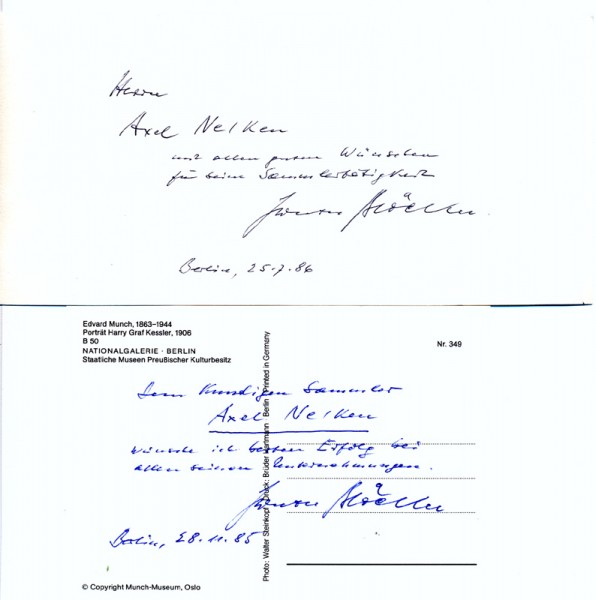 Herrn
Axel Nelken
mit allen guten Wünschen
für seine Sammlertätigkeit
Berlin, 25.7.86
Edvard Munch, 1863–1944
Porträt Harry Graf Kessler, 1906
B 50
NATIONALGALERIE · BERLIN
Staatliche Museen Preußischer Kulturbesitz
Nr. 349
Dem kundigen Sammler
Axel Nelken
wünsche ich besten Erfolg bei
allen seinen Unternehmungen.
Berlin, 28.11.85
Photo: Walter Steinkopf Druck: Brüder Hartmann · Berlin Printed in Germany
© Copyright Munch-Museum, Oslo